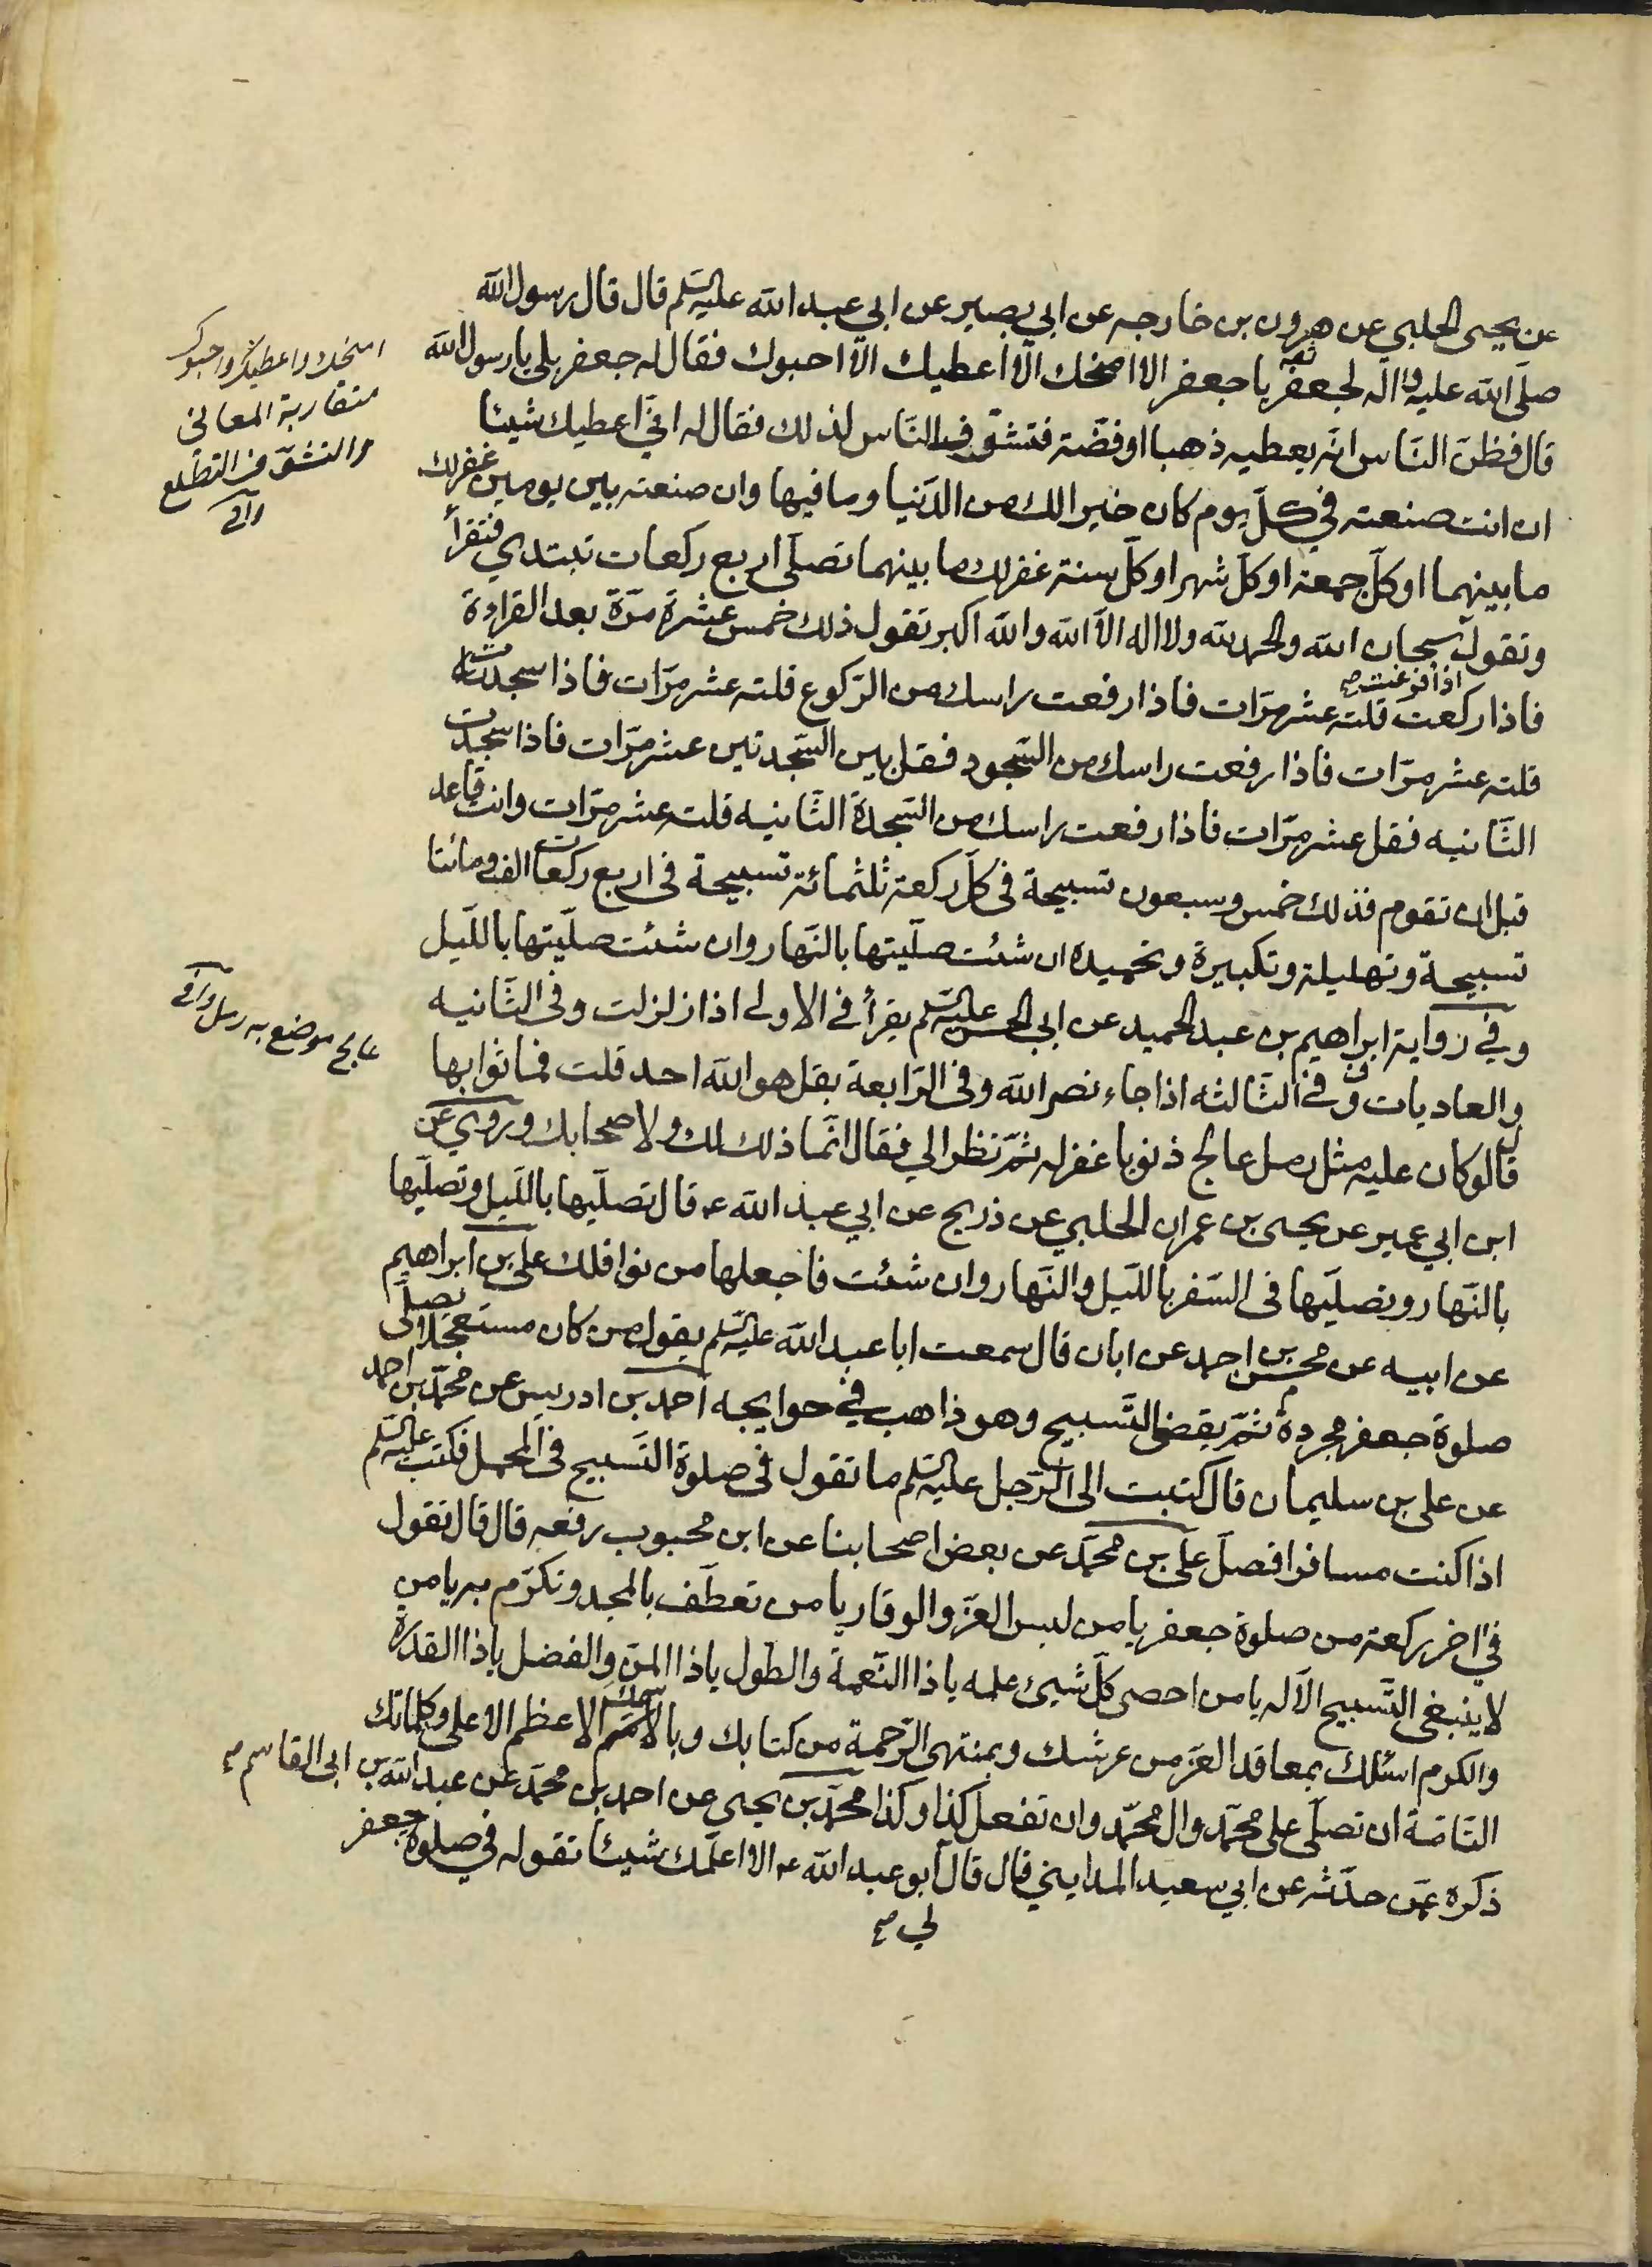 عن يحيى الحلبي عن هرون بن خارجه عن ابي بصير عن ابي عبد الله عليه السلم قال قال رسول الله
صلى الله عليه واله لجعفر يا جعفر الا امنحك الا اعطيك الا احبوك فقال له جعفر بلى يا رسول الله
قال فظن الناس انه يعطيه ذهبا او فضة فتشوف الناس لذلك فقال له اني اعطيك شيئا
ان انت صنعته في كل يوم كان خيرا لك من الدنيا وما فيها وان صنعته بين يومين غفر لك
ما بينهما او كل جمعة او كل شهر او كل سنة غفر لك ما بينهما تصلى اربع ركعات تبتدي فتقرأ
وتقول سبحان الله والحمد لله ولا اله الا الله والله اكبر تقول ذلك خمس عشرة مرة بعد القراءة
اذا فرغت صح
فاذا ركعت قلته عشر مرات فاذا رفعت راسك من الركوع قلته عشر مرات فاذا سجدت
قلته عشر مرات فاذا رفعت راسك من السجود فقل بين السجدتين عشر مرات فاذا سجدت
الثانيه فقل عشر مرات فاذا رفعت راسك من السجدة الثانيه قلته عشر مرات وانت قاعد
قبل ان تقوم فذلك خمس وسبعون تسبيحة في كل ركعة ثلثمائة تسبيحة في اربع ركعات الف ومائتا
تسبيحة وتهليلة وتكبيرة وتحميده ان شئت صليتها بالنهار وان شئت صليتها بالليل
وفي رواية ابراهيم بن عبد الحميد عن ابي الحسن عليه السلم يقرأ في الاولى اذا زلزلت وفي الثانيه
والعاديات وفي الثالثه اذا جاء نصر الله وفي الرابعة بقل هو الله احد قلت فما ثوابها
قال لو كان عليه مثل رمل عالج ذنوبا غفر له ثم نظر الي فقال انما ذلك لك ولاصحابك وروي عن
ابن ابي عمير عن يحيى بن عمران الحلبي عن ذريح عن ابي عبد الله ع قال تصليها بالليل وتصليها
بالنهار وتصليها في السفر بالليل والنهار وان شئت فاجعلها من نوافلك علي بن ابراهيم
عن ابيه عن محسن بن احمد عن ابان قال سمعت ابا عبد الله عليه السلم يقول من كان مستعجلا يصلى
صلوة جعفر مجردة ثم يقضي التسبيح وهو ذاهب في حوايجه احمد بن ادريس عن محمد بن احمد
عن علي بن سليمان قال كتبت الى الرجل عليه السلم ما تقول في صلوة التسبيح في المحمل فكتب عليه السلم
اذا كنت مسافرا فصل علي بن محمد عن بعض اصحابنا عن ابن محبوب رفعه قال قال تقول
في اخر ركعة من صلوة جعفر يا من لبس العز والوقار يا من تعطف بالمجد وتكرم به يا من
لا ينبغي التسبيح الا له يا من احصى كل شيء علمه يا ذا النعمة والطول يا ذا المن والفضل يا ذا القدرة
والكرم اسئلك بمعاقد العز من عرشك وبمنتهى الرحمة من كتابك وباسمك الاعظم الاعلى وكلماتك
التامة ان تصلي على محمد وال محمد وان تفعل كذا وكذا محمد بن يحيى عن احمد بن محمد عن عبد الله بن ابي القاسم صح
ذكره عمن حدثه عن ابي سعيد المدايني قال قال ابو عبد الله ع الا اعلمك شيئا تقوله في صلوة جعفر
لي صح
امنحك واعطيك واحبوك
متقاربة المعاني
والتشوف التطلع
وافي
عالج موضع به رمل وافي